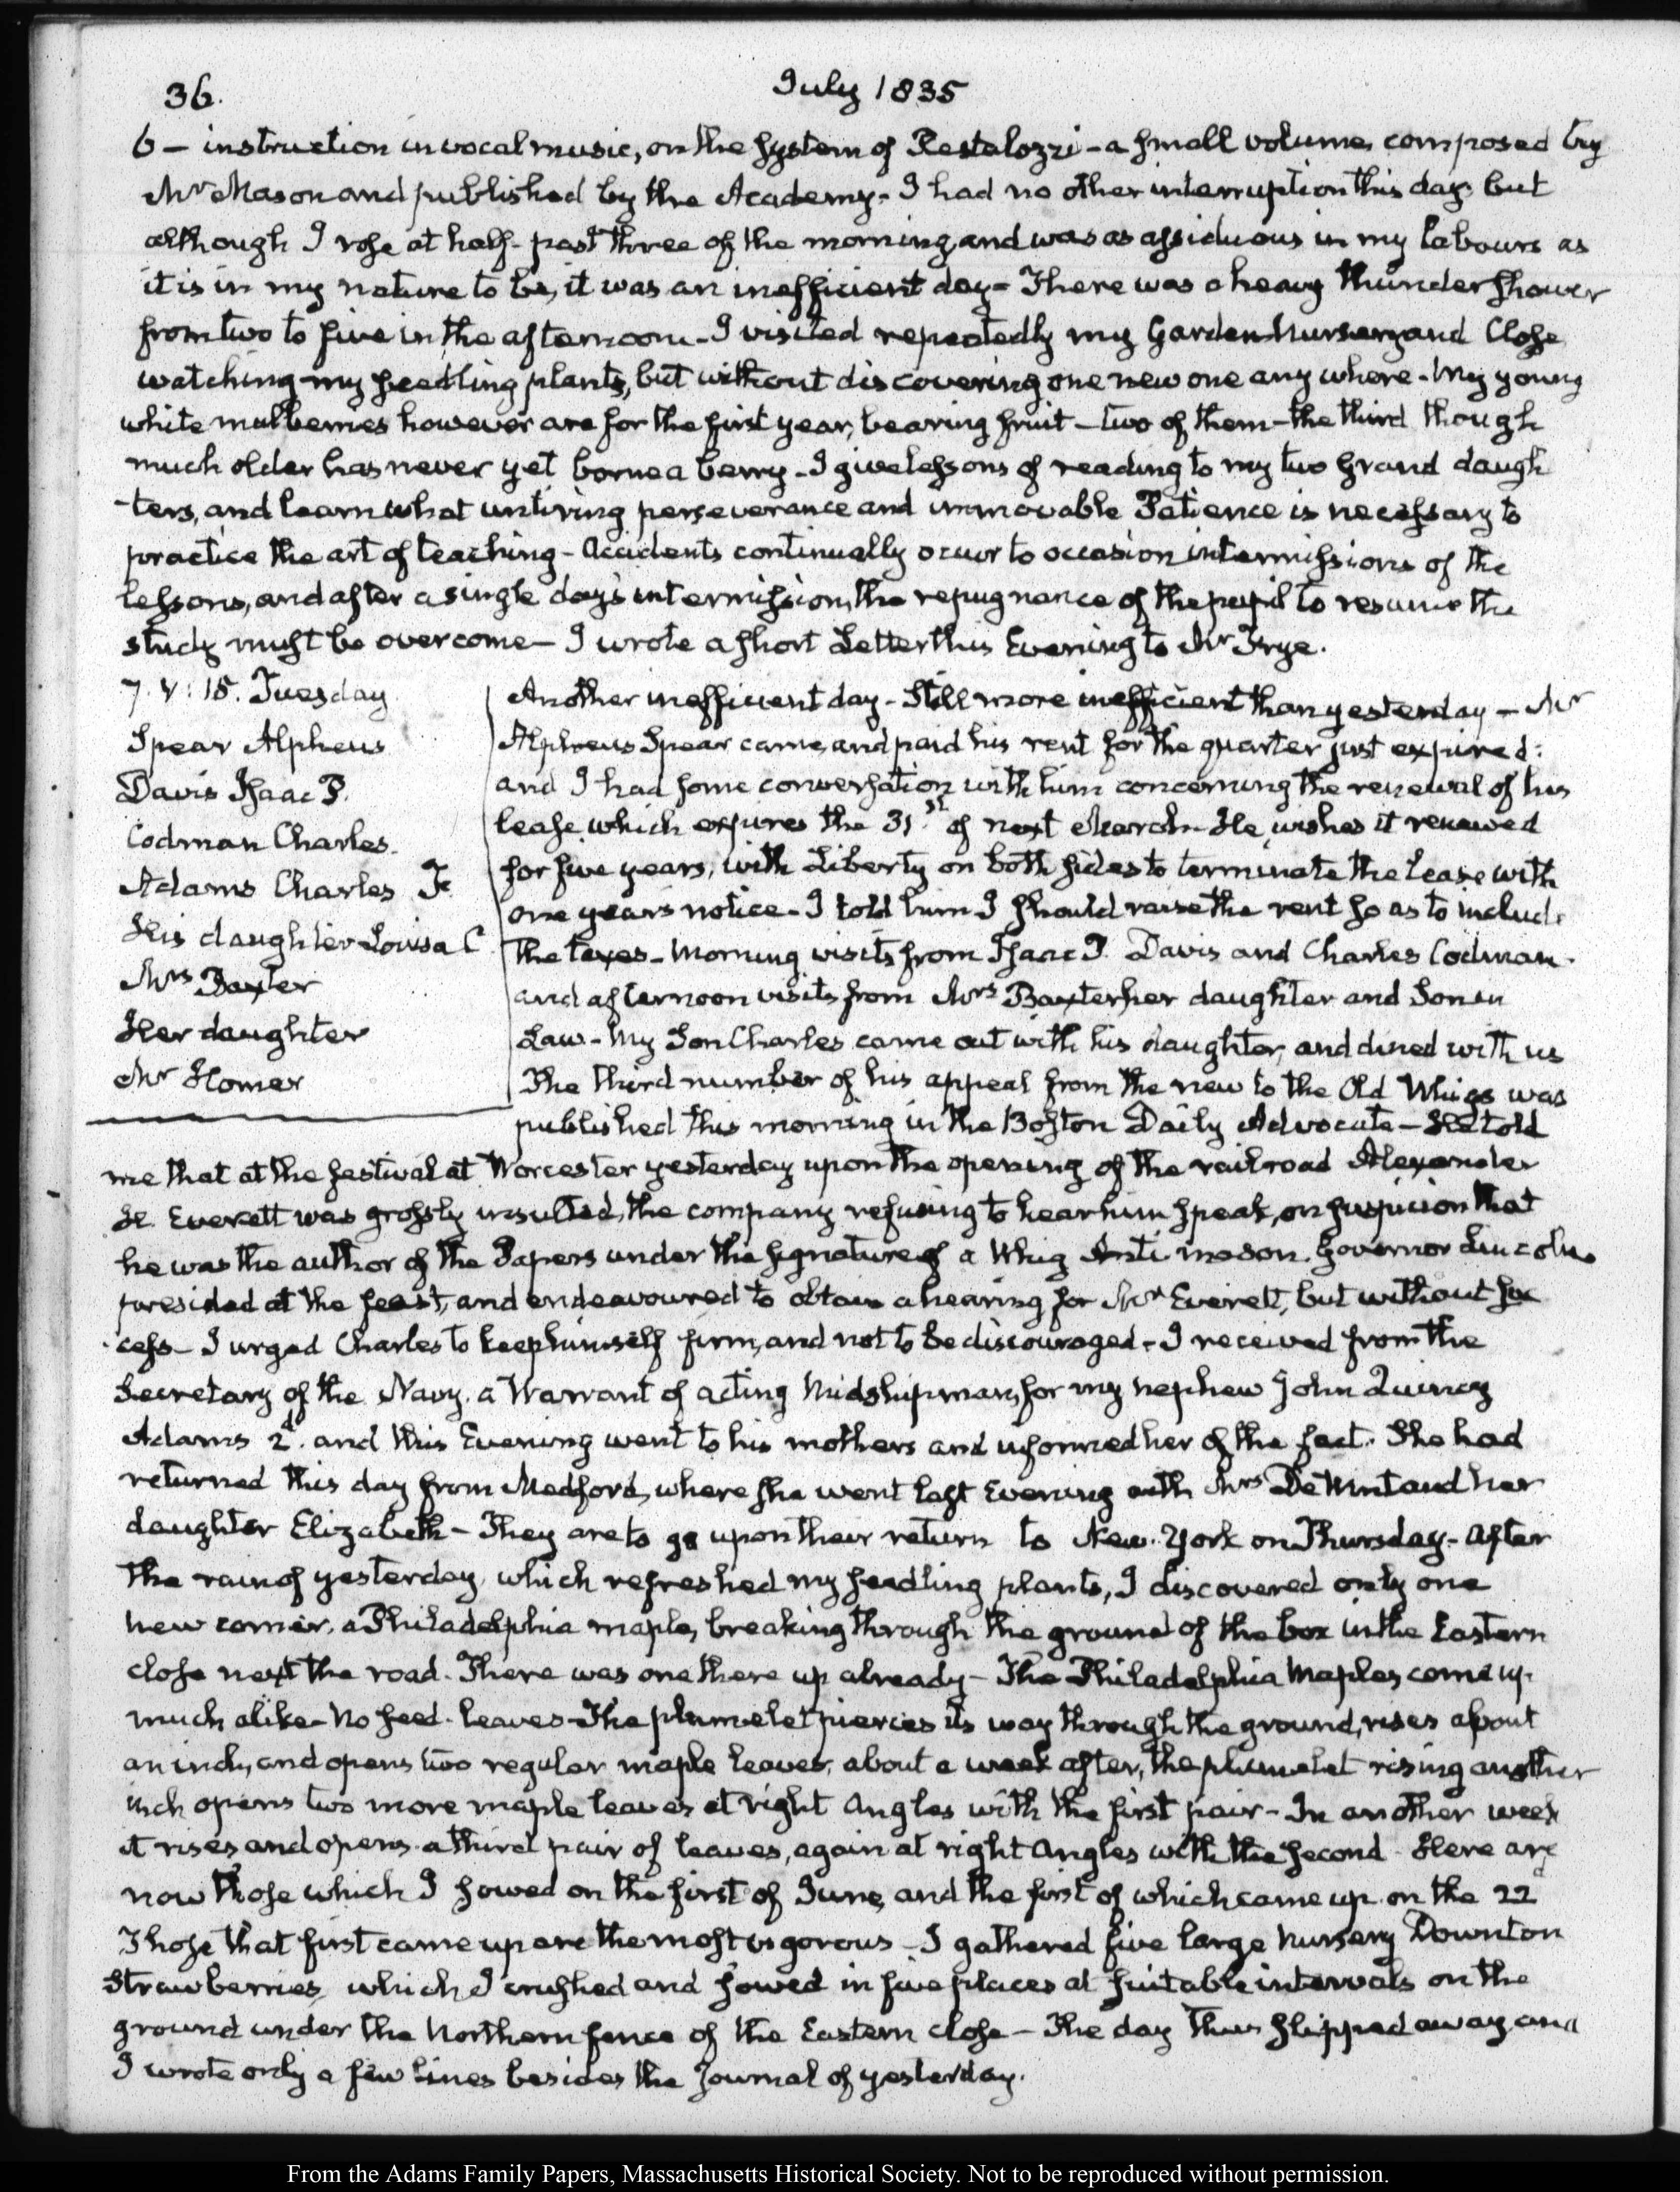 36.
July 1835
6 — instruction in vocal music, on the System of Pestalozzi - a small volume, composed by
Mr Mason and published by the Academy - I had no other interruption this day, but
although I rose at half-past three of the morning, and was as assiduous in my labours as
it is in my nature to be, it was an inefficient day - There was a heavy thunder shower
from two to five in the afternoon - I visited repeatedly my Garden Nursery and Close
watching my seedling plants, but without discovering one new one any where - My young
white mulberries however are for the first year, bearing fruit - two of them - the third though
much older has never yet borne a berry - I give lessons of reading to my two Grand daugh
-ters, and learn what untiring perseverance and immovable Patience is necessary to
practice the art of teaching - Accidents continually occur to occasion intermissions of the
lessons, and after a single day's intermission, the repugnance of the pupil to resume the
study must be overcome - I wrote a short Letter this Evening to Mr Frye.
7. V: 15. Tuesday
Spear Alpheus
Davis Isaac P.
Codman Charles.
Adams Charles F.
His daughter Louisa C
Mrs Baxter
Her daughter
Mr Homer
Another inefficient day - Still more inefficient than yesterday - Mr
Alpheus Spear came, and paid his rent for the quarter just expired:
and I had some conversation with him concerning the renewal of his
lease, which expires the 31st of next March - He wishes it renewed
for five years, with Liberty on both sides to terminate the lease with
one years notice - I told him I should raise the rent so as to include
the taxes - Morning visits from Isaac P. Davis and Charles Codman.
and afternoon visits from Mrs Baxter, her daughter and Son in
Law - My Son Charles came out with his daughter, and dined with us
The third number of his appeal from the new to the Old Whigs was
published this morning in the Boston Daily Advocate - He told
me that at the festival at Worcester yesterday upon the opening of the railroad Alexander
H. Everett was grossly insulted, the company refusing to hear him speak, on suspicion that
he was the author of the Papers under the signature of a Whig Anti mason. Governor Lincoln
presided at the feast, and endeavoured to obtain a hearing for Mr Everett, but without suc
-cess - I urged Charles to keep himself firm, and not to be discouraged - I received from the
Secretary of the Navy. a Warrant of acting Midshipman, for my nephew John Quincy
Adams 2d. and this Evening went to his mothers and informed her of the fact. She had
returned this day from Medford, where she went last Evening with Mrs De Wint and her
daughter Elizabeth - They are to go upon their return to New-York on Thursday - After
the rain of yesterday, which refreshed my seedling plants, I discovered only one
new comer, a Philadelphia maple, breaking through the ground of the box in the Eastern
close next the road. There was one there up already - The Philadelphia Maples come up
much alike - No seed-leaves - The plumelet pierces its way through the ground, rises about
an inch, and opens two regular maple leaves, about a week after, the plumelet rising another
inch opens two more maple leaves at right Angles with the first pair - In another week
it rises and opens a third pair of leaves, again at right Angles with the second. Here are
now those which I sowed on the first of June, and the first of which came up on the 22d
Those that first came up are the most vigorous - I gathered five large Nursery Downton
Strawberries, which I crushed and sowed in five places at suitable intervals on the
ground under the Northern fence of the Eastern close - The day thus slipped away and
I wrote only a few lines besides the Journal of yesterday.
From the Adams Family Papers, Massachusetts Historical Society. Not to be reproduced without permission.